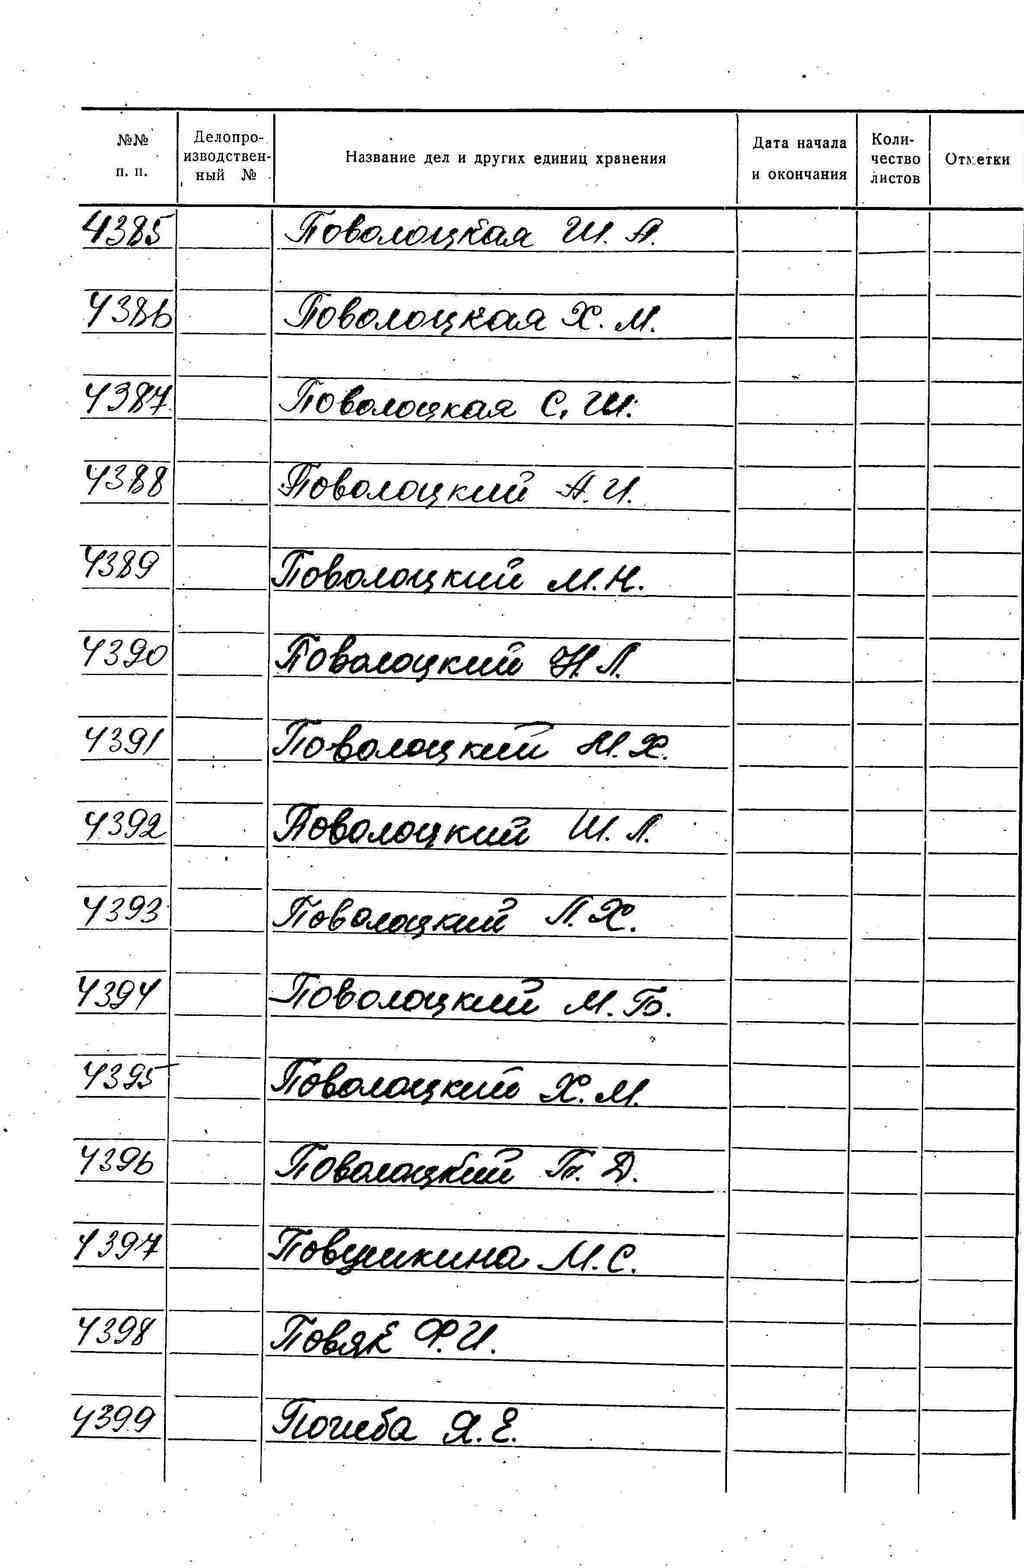 №№ п. п. Делопро- изводствен- ный № Название дел и других единиц хранения Дата начала и окончания Коли- чество листов Отметки
4385 Поволоцкая Ш. А.
4386 Поволоцкая Х. М.
4387 Поволоцкая С. Ш.
4388 Поволоцкий А. И.
4389 Поволоцкий М. Н.
4390 Поволоцкий Н. Л.
4391 Поволоцкий М. Х.
4392 Поволоцкий Ш. Л.
4393 Поволоцкий Л. Х.
4394 Поволоцкий М. Б.
4395 Поволоцкий Х. М.
4396 Поволоцкий Б. Д.
4397 Повшикина М. С.
4398 Повяк Ф. И.
4399 Погиба Я. Е.